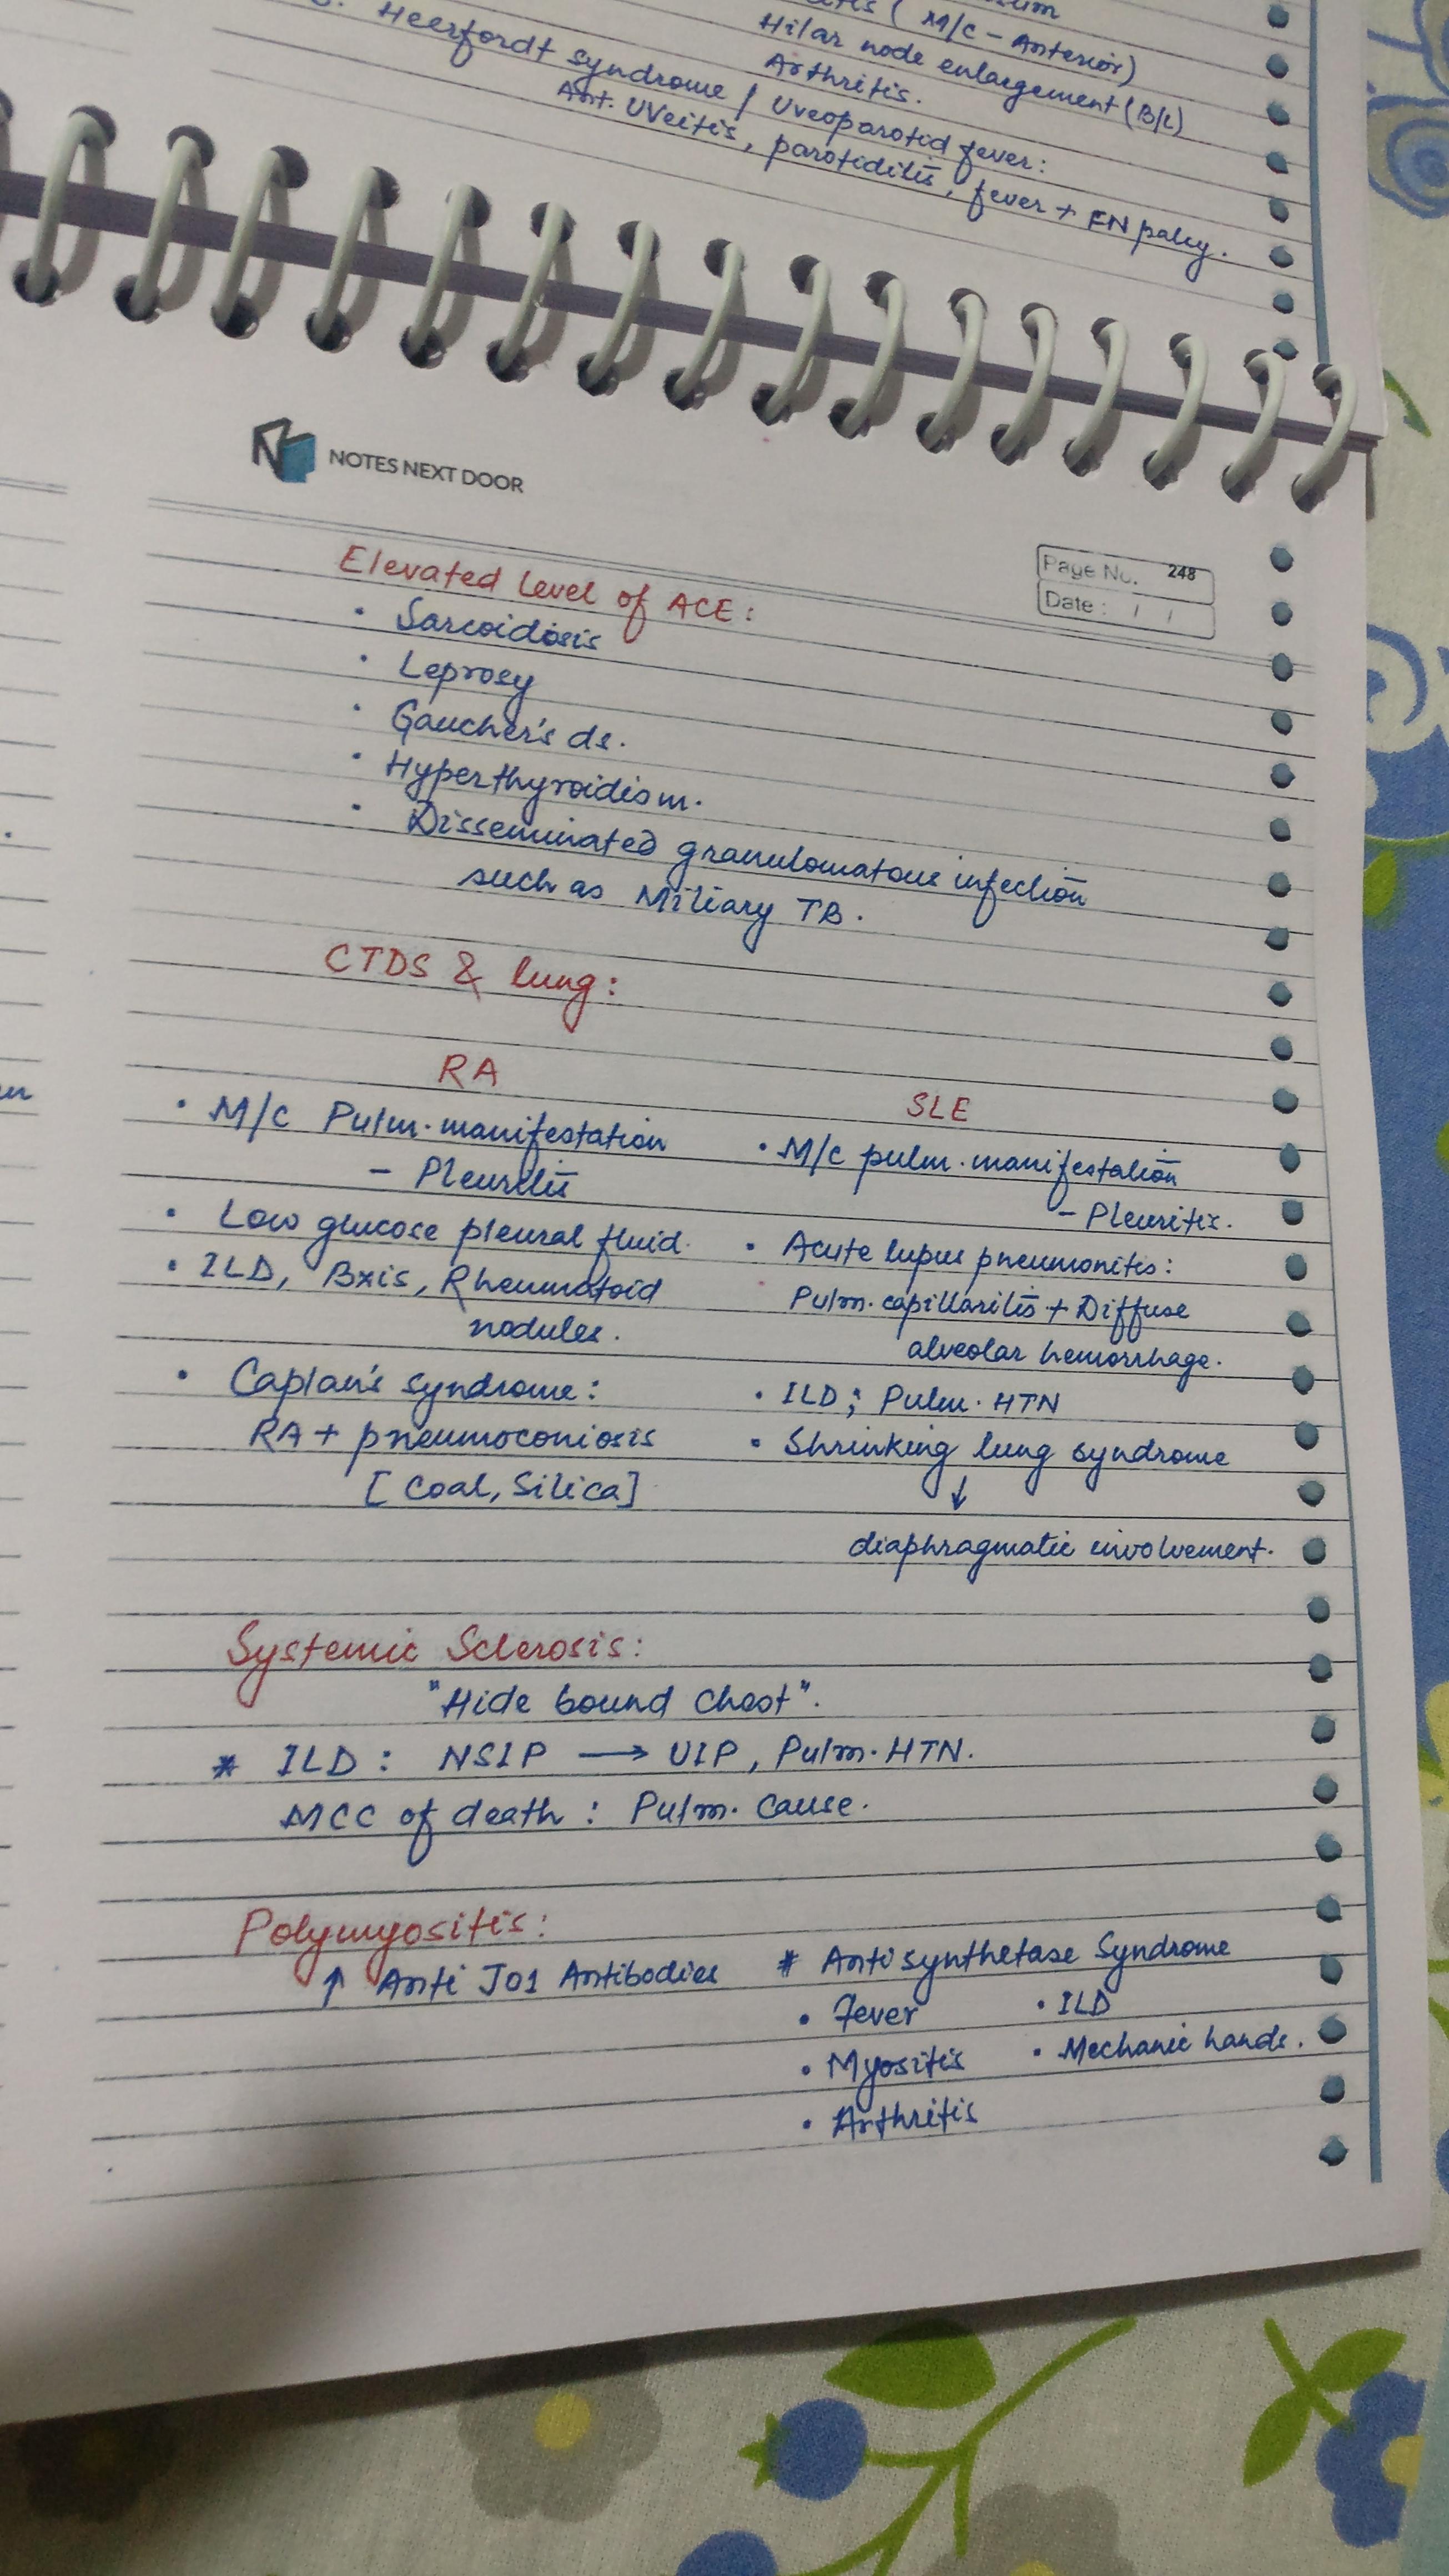 M/C - Anterior)
Hilar node enlargement (B/L)
Arthritis.
Heerfordt syndrome / Uveoparotid fever:
Ant. UVeitis, parotiditis, fever + FN palsy.
NOTES NEXT DOOR
Page No. 248
Date : / /
Elevated Level of ACE:
• Sarcoidosis
• Leprosy
• Gaucher's ds.
• Hyperthyroidism.
• Disseminated granulomatous infection
such as Miliary TB.
CTDS & lung:
RA
• M/C Pulm. manifestation
- Pleuritis
• Low glucose pleural fluid.
• ILD, Bxis, Rheumatoid
nodules.
• Caplan's syndrome:
RA + pneumoconiosis
[Coal, Silica]
SLE
• M/C pulm. manifestation
- Pleuritis.
• Acute lupus pneumonitis:
Pulm. capillaritis + Diffuse
alveolar hemorrhage.
• ILD; Pulm. HTN
• Shrinking lung syndrome
↓
diaphragmatic involvement.
Systemic Sclerosis:
"Hide bound chest".
* ILD: NSIP → UIP, Pulm. HTN.
MCC of death: Pulm. cause.
Polymyositis:
↑ Anti JO1 Antibodies
* Antisynthetase Syndrome
• Fever • ILD
• Myositis • Mechanic hands.
• Arthritis